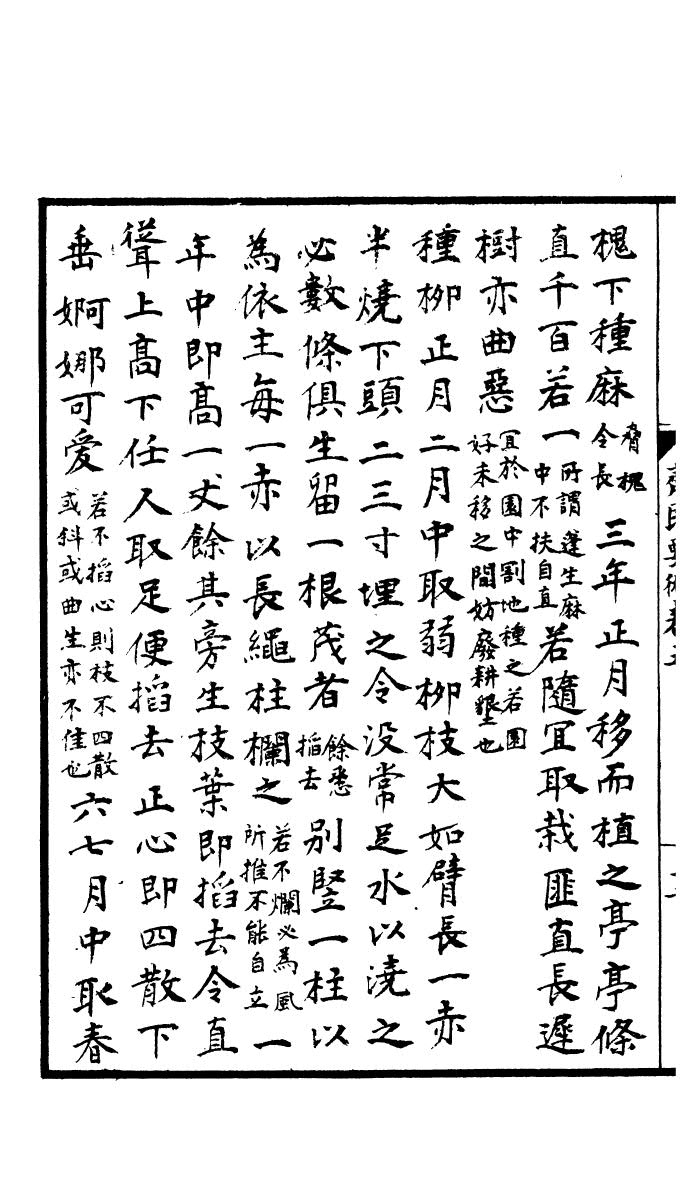 槐下種麻脅槐令長三年正月移而植之亭亭條
直千百若一所謂蓬生麻中不扶自直若隨宜取栽匪直長遲
樹亦曲惡宜於園中割地種之若園好未移之間妨廢耕墾也
種柳正月二月中取弱柳枝大如臂長一赤
半燒下頭二三寸埋之令没常足水以澆之
必數條俱生留一根茂者餘悉搯去别竪一柱以
為依主每一赤以長繩柱欄之若不爛必為風所推不能自立一
年中即高一丈餘其旁生枝葉即搯去令直
聳上高下任人取足便搯去正心即四散下
垂婀娜可愛若不搯心則枝不四散或斜或曲生亦不佳也六七月中取春